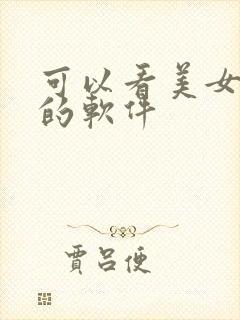 可以看美女
的軟件
賈呂便